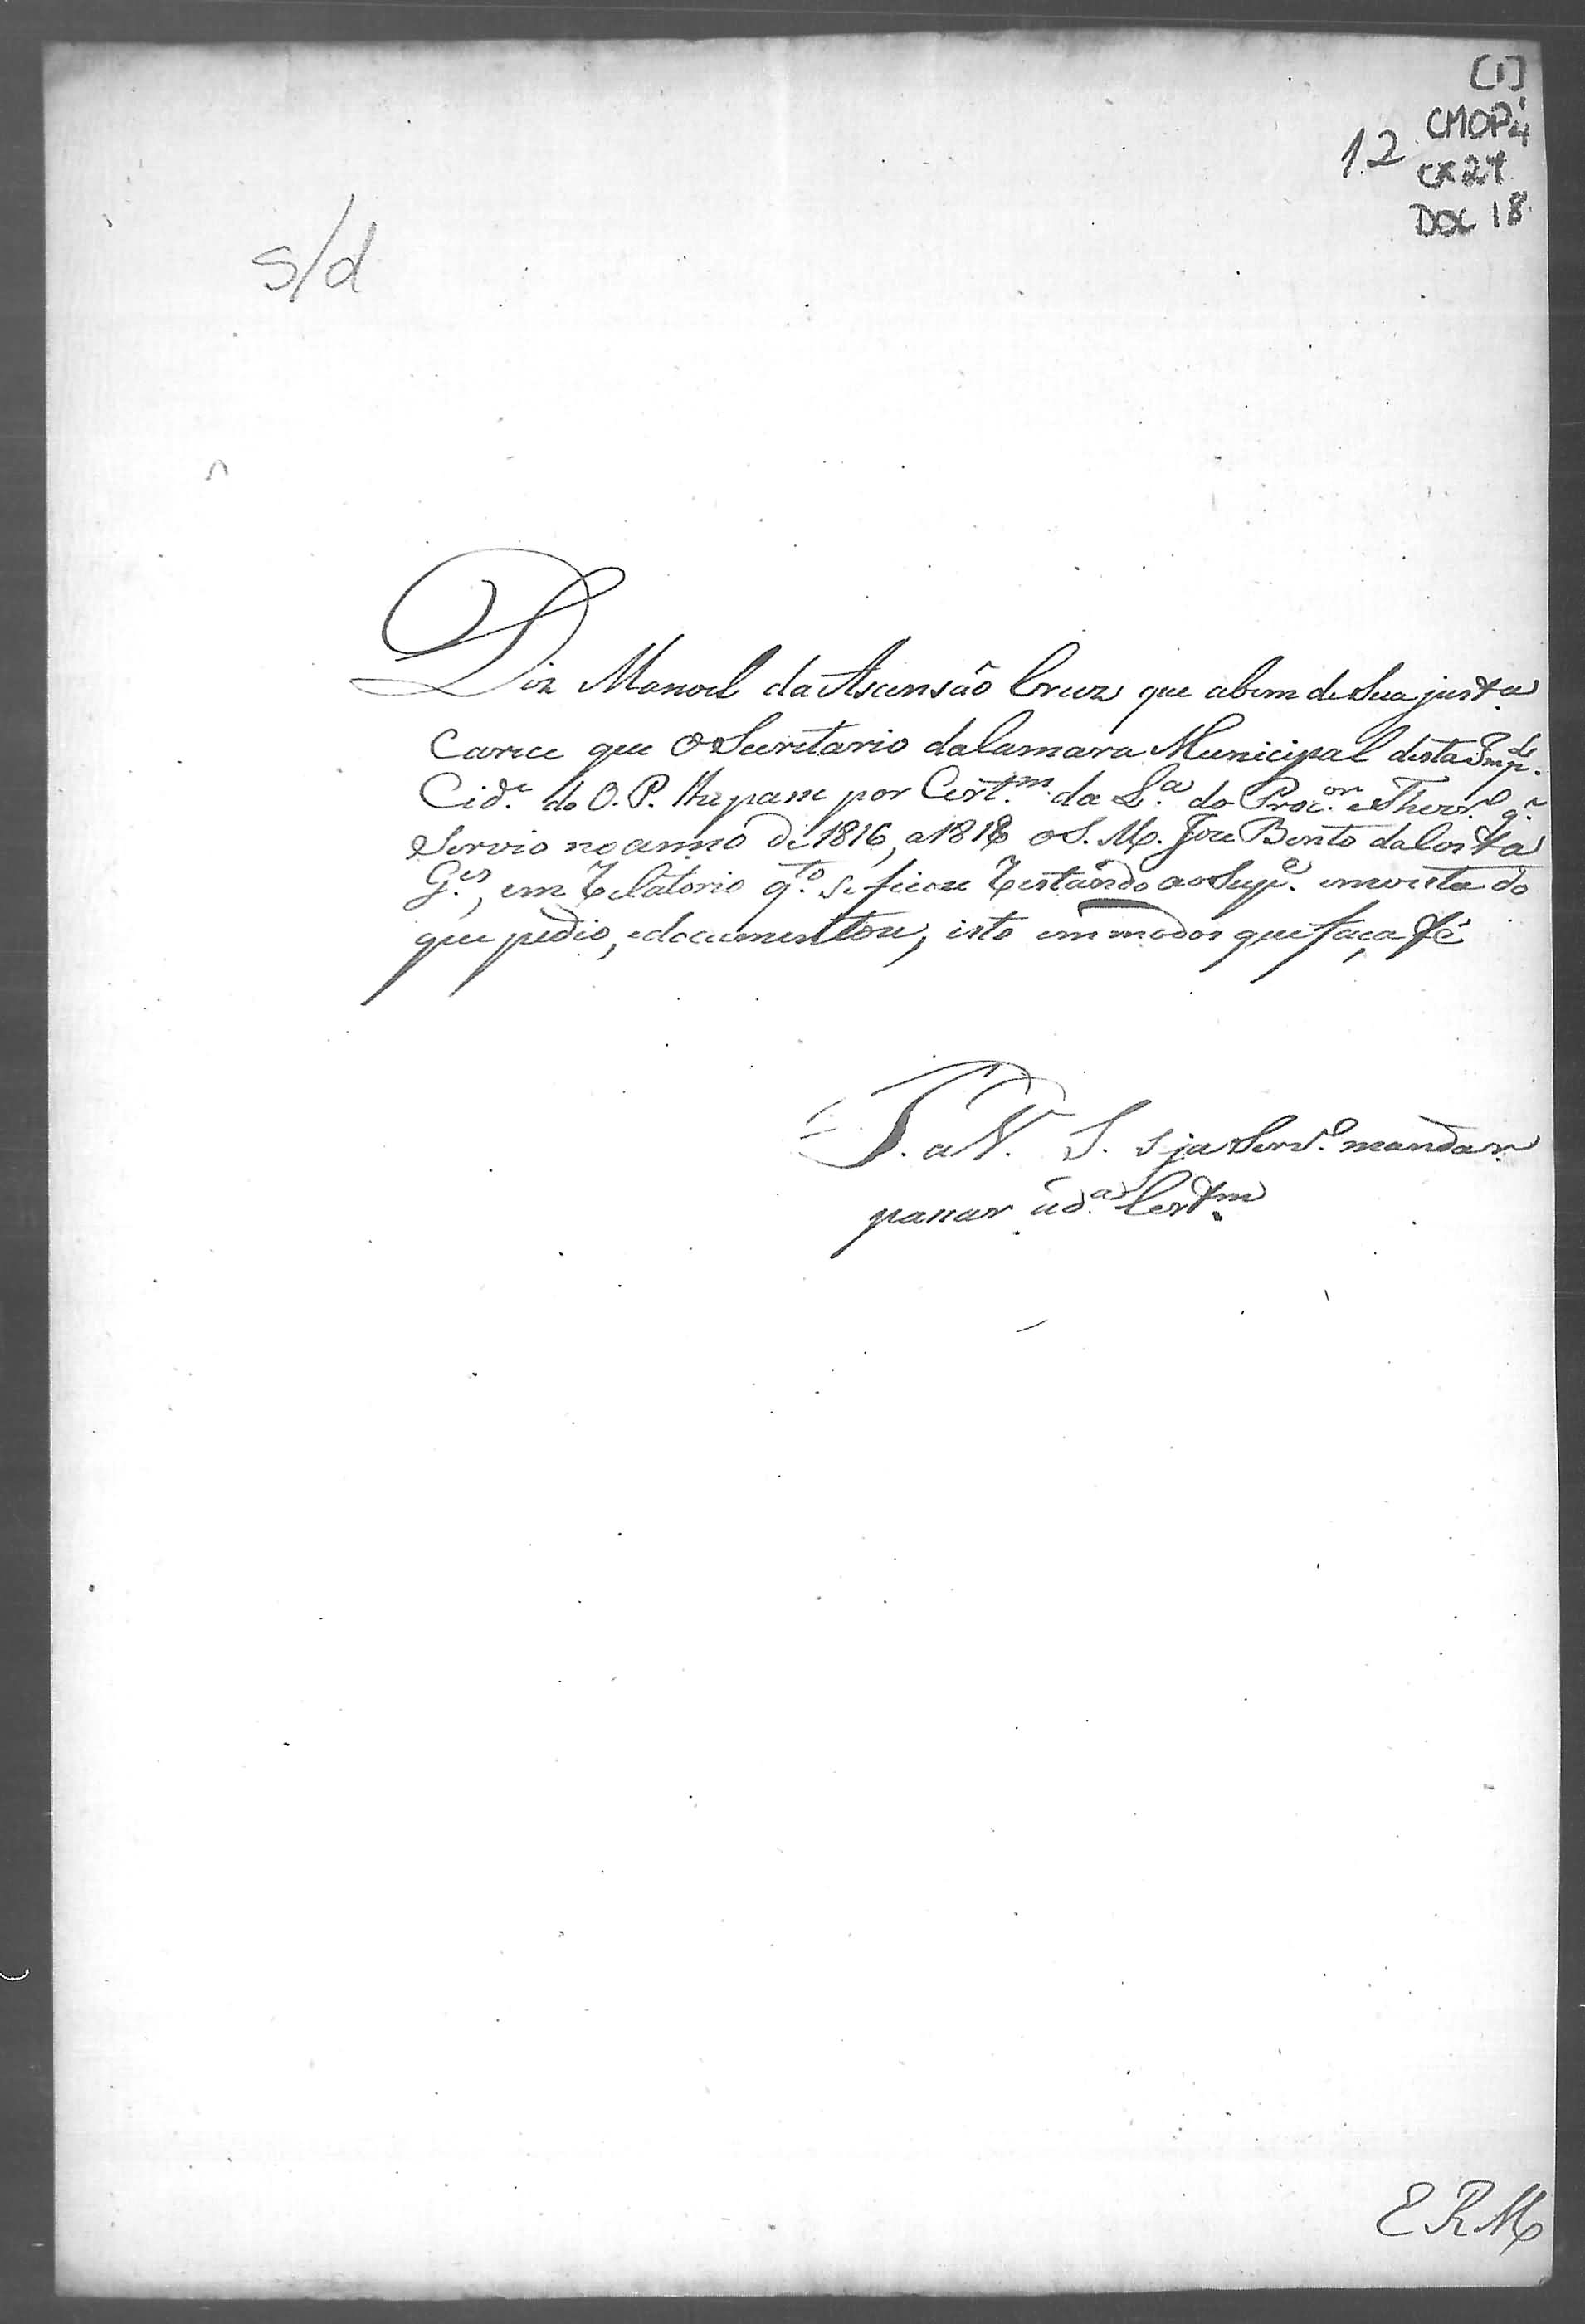 [1]
CMOP 4
12 CX 27
DOC 18
s/d
Diz Manoel da Ascensão Cruz que abem de Sua just.a
Carece que o Secretario daCamara Municipal desta Imp.de
Cid.e do O. P. lhe passe por Cert.m da L.a do Proc.or e Thezr.o q.e
Servio no anno de 1816, a 1818 o S. M. Joze Bento daCosta
G.es, em Relátorio q.to se ficou Restando ao Sup.e em vista do
que pedio, edocumentou, isto em modos que faça fé
P. a V. S. Sja Serv.o mandar
passar ad.a Cert.m
E R M